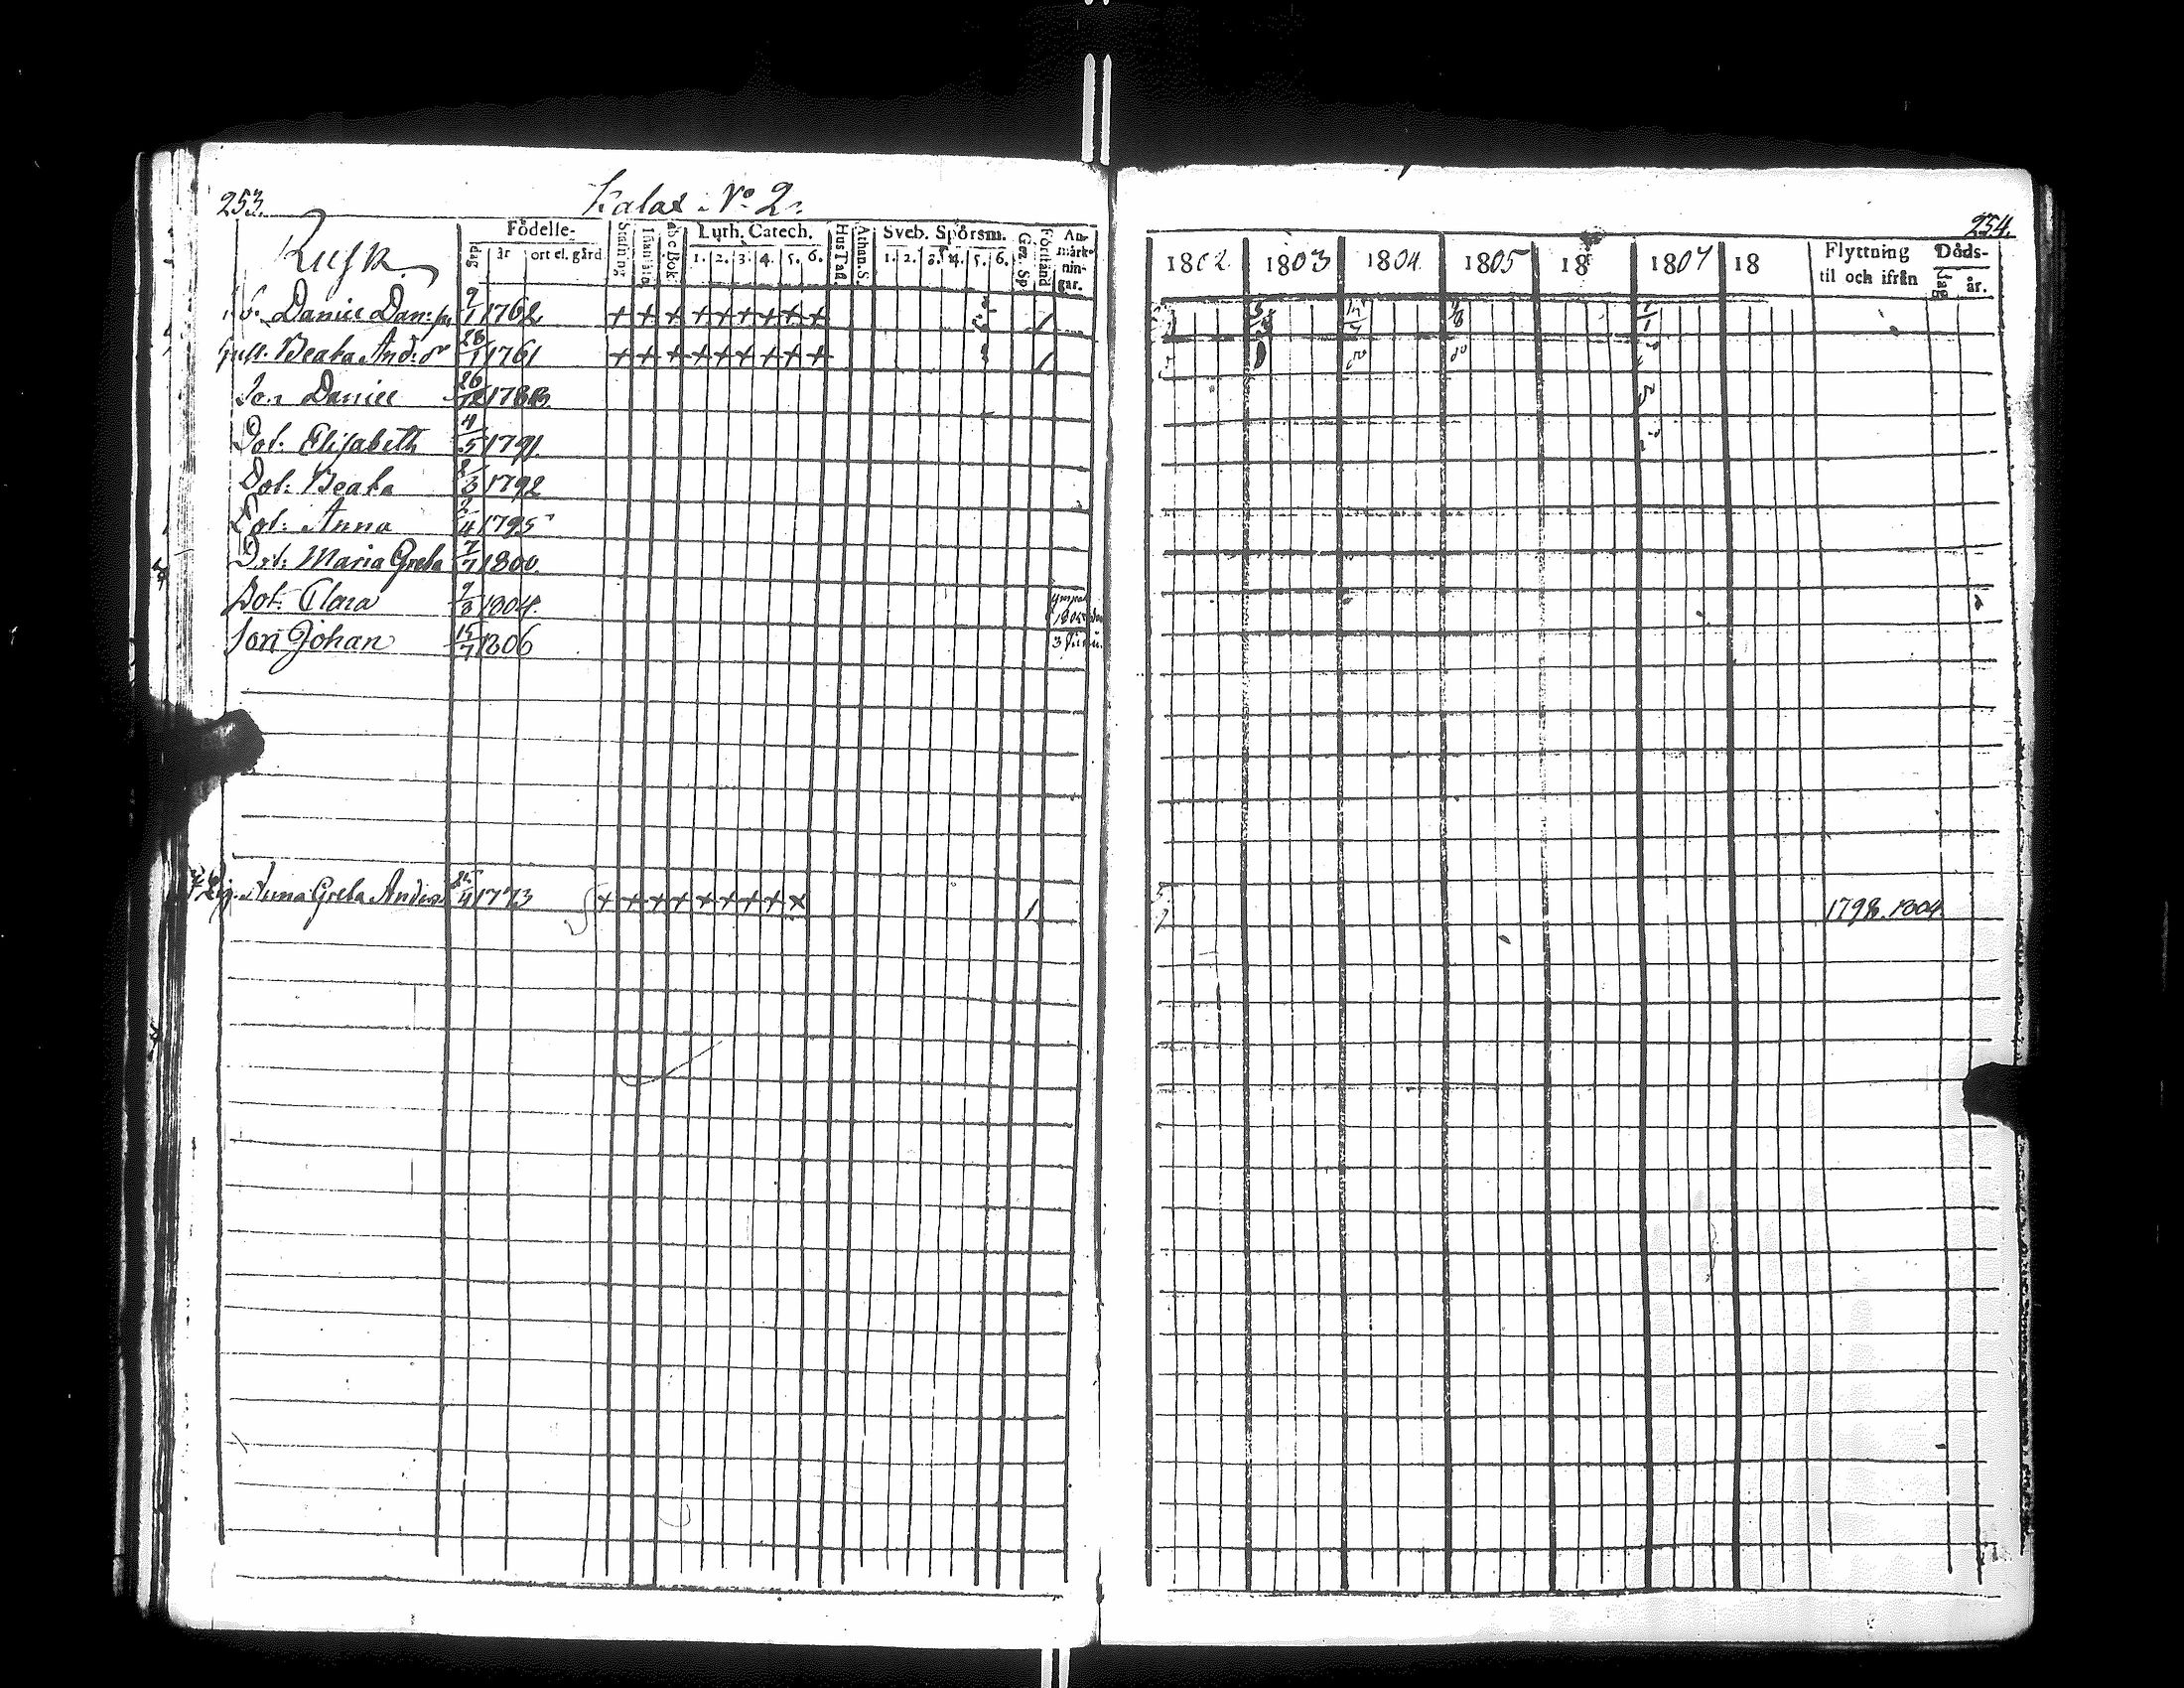 253.
Kalax No 2
Rusk
Födelse-
dag
år
ort el. gård
Stafning
Innanläsn
abcBok
Luth. Catech.
1. 2. 3. 4. 5. 6.
HusTafl.
Athan.S.
Sveb. Spörsm.
1. 2. 3. 4. 5. 6.
Gez. Sp
Förstånd
An-
märk-
nin-
gar.
Daniel Dan: 9/1 1762 + + + + + + + + + 1
Beata And: dr 28/1 1761 + + + + + + + + + 1
Son Daniel 26/12
Dot: Elisabeth 4/5 1791.
Dot: Beata 1792
Dot: Anna 2/4 1795
Dot: Maria Greta 7/7 1800.
Dot: Clara 1804.
Son Johan 15/7 1806
Anna Greta Anders 25/4 1773 + + + + + + + + + 1
254.
1802. 1803 1804 1805 18 1807 18
Flyttning
til och ifrån
Döds-
dag
år.
1798. 1804.